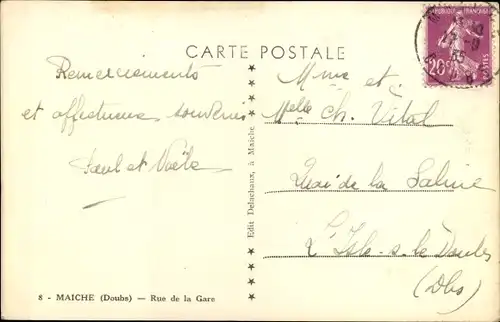 CARTE POSTALE
REPUBLIQUE FRANÇAISE
20c
POSTES
Remerciements
et affectueux souvenirs
Paul et Noële
Mme et
Melle Ch. Vital
Quai de la Saline
L'Isle-s-le Doubs
(Dbs)
Edit Delachaux, à Maiche
8 - MAICHE (Doubs) - Rue de la Gare